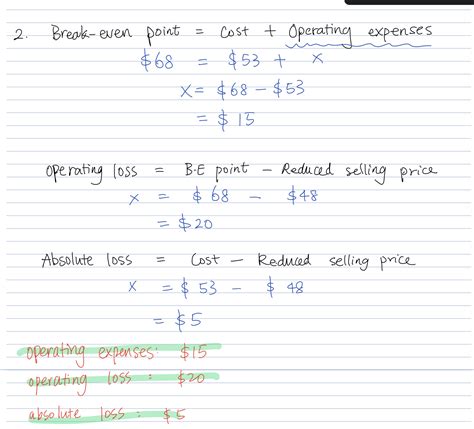 2. Break-even point = Cost + Operating expenses
$68 = $53 + x
x = $68 - $53
= $15
Operating loss = B.E point - Reduced selling price
x = $68 - $48
= $20
Absolute loss = Cost - Reduced selling price
x = $53 - $48
= $5
operating expenses: $15
operating loss: $20
absolute loss: $5